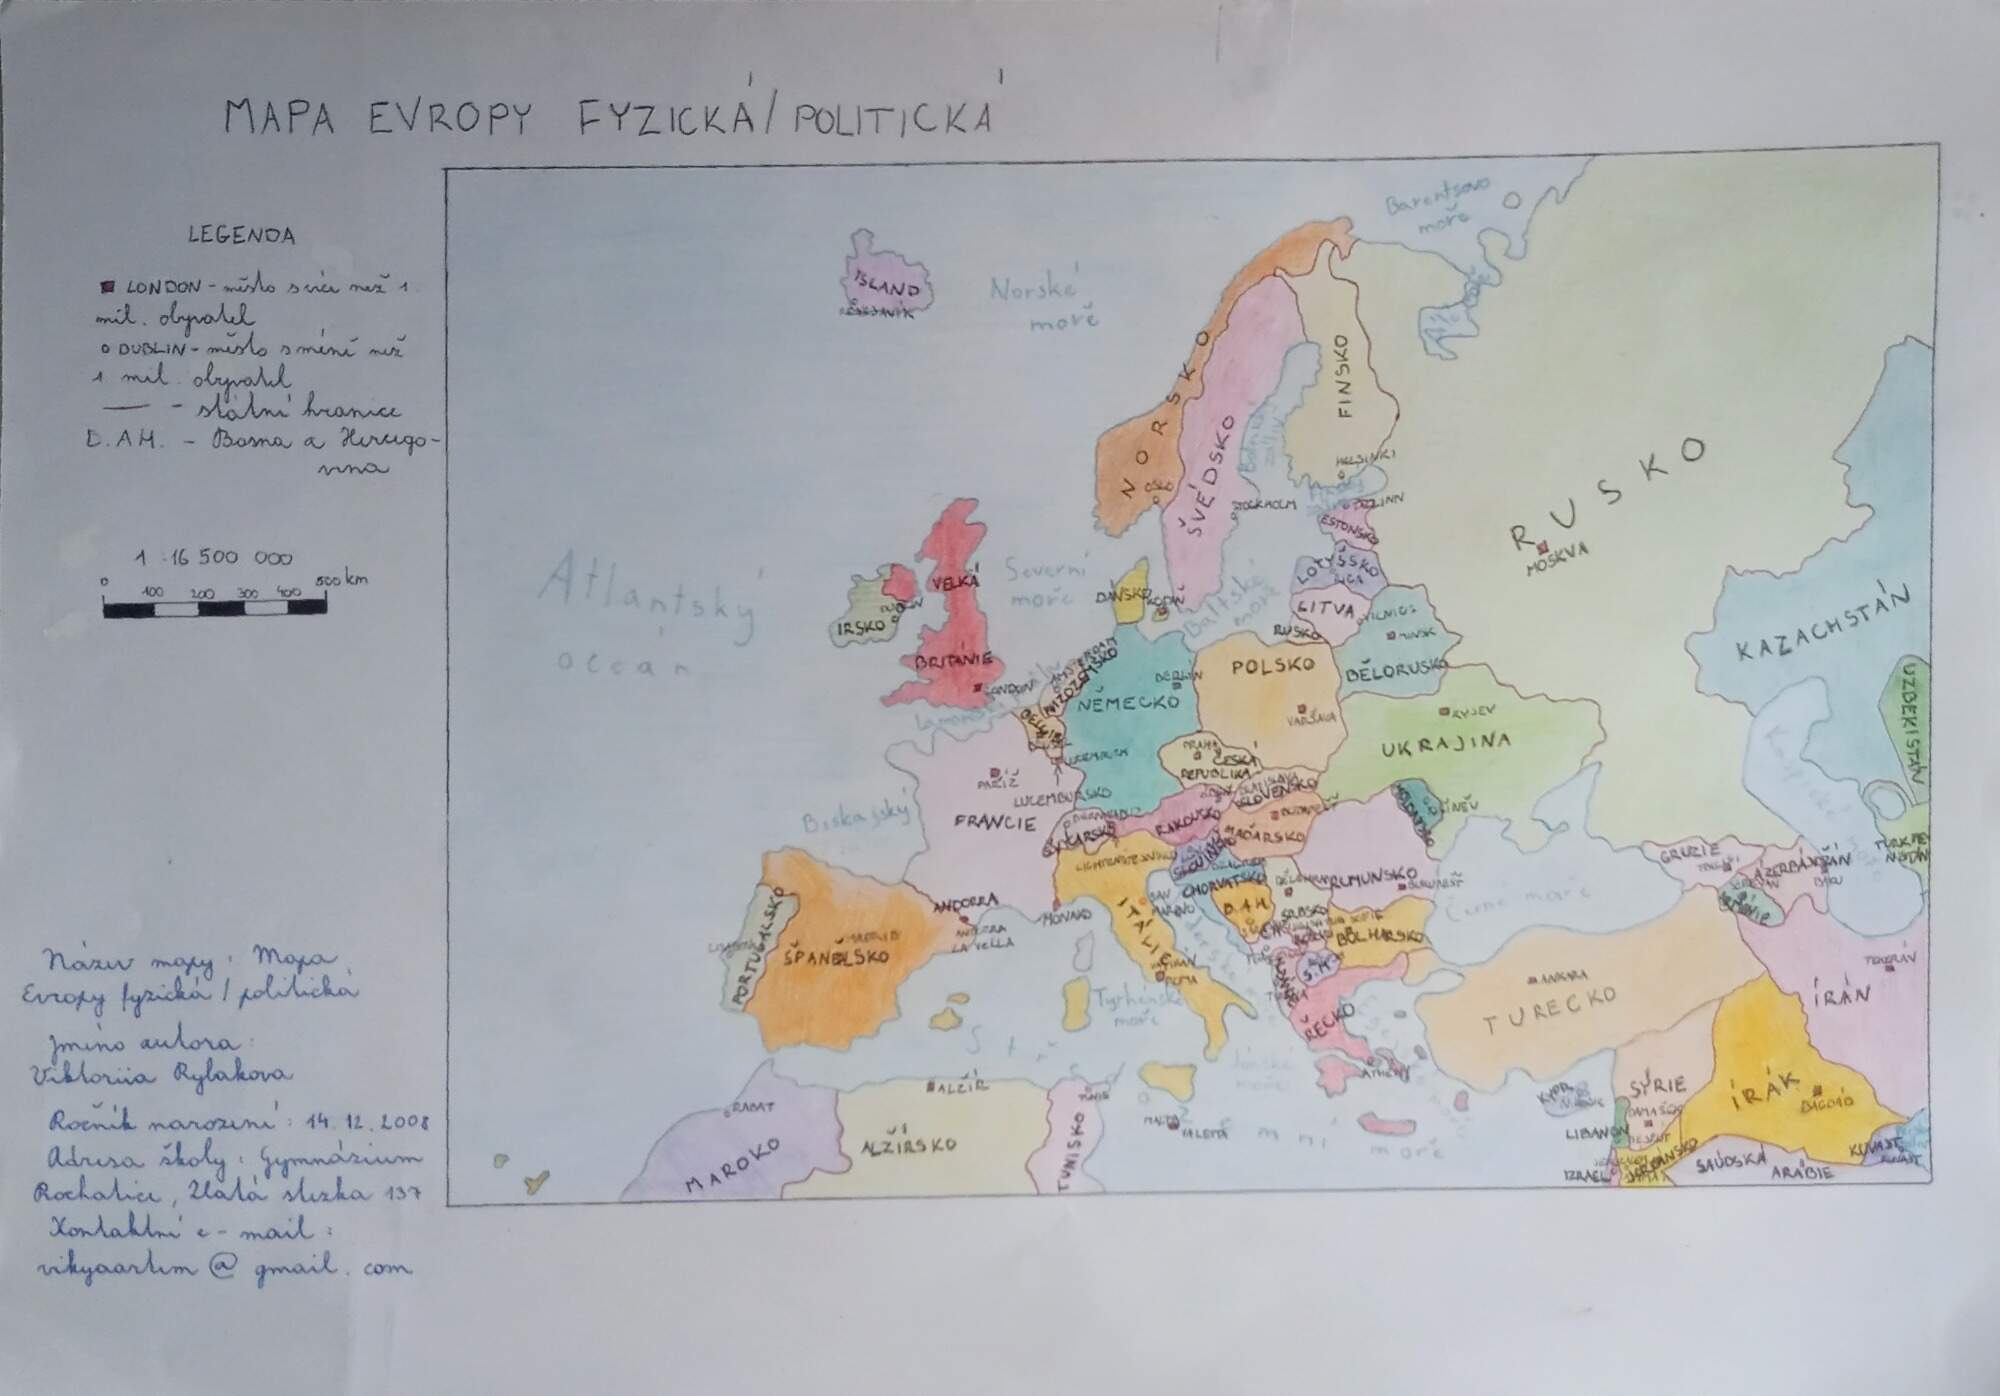 MAPA EVROPY FYZICKÁ/POLITICKÁ
LEGENDA
LONDON - město s více než 1
mil. obyvatel
DUBLIN - město s méně než
1 mil. obyvatel
- státní hranice
B.A H. - Bosna a Hercego-
vina
1:16 500 000
0 100 200 300 400 500 km
Název mapy: Mapa
Evropy fyzická / politická
Jméno autora:
Viktoriia Rybakova
Ročník narození: 14.12.2008
Adresa školy: Gymnázium
Rochatice, Zlatá stezka 137
Kontaktní e-mail:
vikyaartem@gmail.com
Barentsovo
moře
Norské
moře
ISLAND
NORSKO
OSLO
ŠVÉDSKO
STOCKHOLM
FINSKO
HELSINKI
Botnický
záliv
ESTONSKO
LOTYŠSKO
RIGA
LITVA
VILNIUS
RUSKO
MOSKVA
RUSKO
Atlantský
oceán
Severní
moře
Baltské
moře
DÁNSKO
KODAŇ
VELKÁ
BRITÁNIE
LONDON
IRSKO
DUBLIN
AMSTERDAM
NIZOZEMSKO
BELGIE
NĚMECKO
BERLÍN
POLSKO
VARŠAVA
BĚLORUSKO
MINSK
UKRAJINA
KYJEV
KAZACHSTÁN
UZBEKISTÁN
TURKME
NISTÁN
PRAHA
ČESKÁ
REPUBLIKA
LUCEMBURK
LUCEMBURSKO
PAŘÍŽ
FRANCIE
Biskajský
BRATISLAVA
SLOVENSKO
RAKOUSKO
MAĎARSKO
BUDAPEŠŤ
MOLDAVSKO
KIŠINĚV
ŠVÝCARSKO
LICHTENŠTEJNSKO
SLOVINSKO
CHORVATSKO
B.A H.
BĚLEHRAD
SRBSKO
RUMUNSKO
BUKUREŠŤ
BULHARSKO
SOFIE
Černé moře
GRUZIE
ÁZERBÁJDŽÁN
BAKU
JEREVAN
ARMÉNIE
ANDORRA
ANDORRA
LA VELLA
MONAKO
SAN
MARINO
ITÁLIE
VATIKÁN
ROMA
PORTUGALSKO
ŠPANĚLSKO
MADRID
Tyrhénské
moře
S.M.
ŘECKO
ATHÉNY
Jónské
moře
ANKARA
TURECKO
TEHERÁN
ÍRÁN
SÝRIE
DAMAŠEK
ÍRÁK
BAGDÁD
KYPR
LIBANON
BEJRÚT
IZRAEL
JORDÁNSKO
SAÚDSKÁ
ARÁBIE
KUVAJT
KUVAJT
Středozemní moře
MALTA
VALETTA
RABAT
MAROKO
ALŽÍR
ALŽÍRSKO
TUNIS
TUNISKO